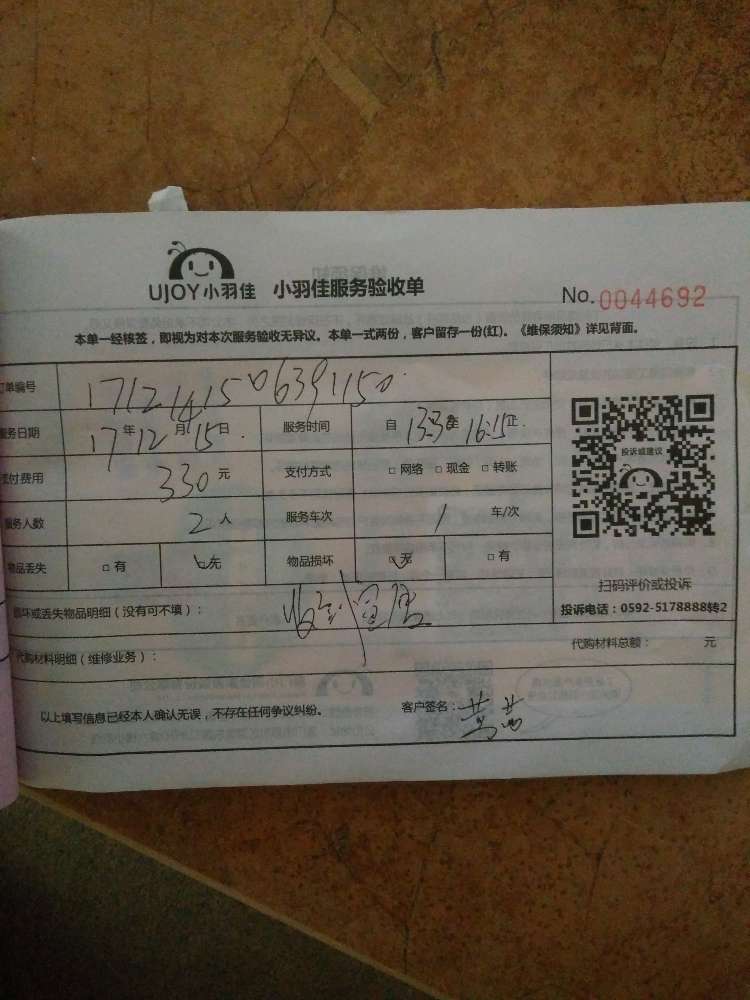 UJOY小羽佳 小羽佳服务验收单 No. 0044692
本单一经核签，即视为对本次服务验收无异议。本单一式两份，客户留存一份(红)。《维保须知》详见背面。
订单编号 1712141506391150
服务日期 17年12月15日 服务时间 自 至 16:15止
付费用 330元 支付方式 □网络 □现金 □转账
服务人数 2人 服务车次 1 车/次
物品丢失 □有 □无 物品损坏 □无 □有
投诉或建议
扫码评价或投诉
投诉电话：0592-5178888转2
损坏或丢失物品明细（没有可不填）：
代购材料明细（维修业务）： 代购材料总额： 元
以上填写信息已经本人确认无误，不存在任何争议纠纷。 客户签名：